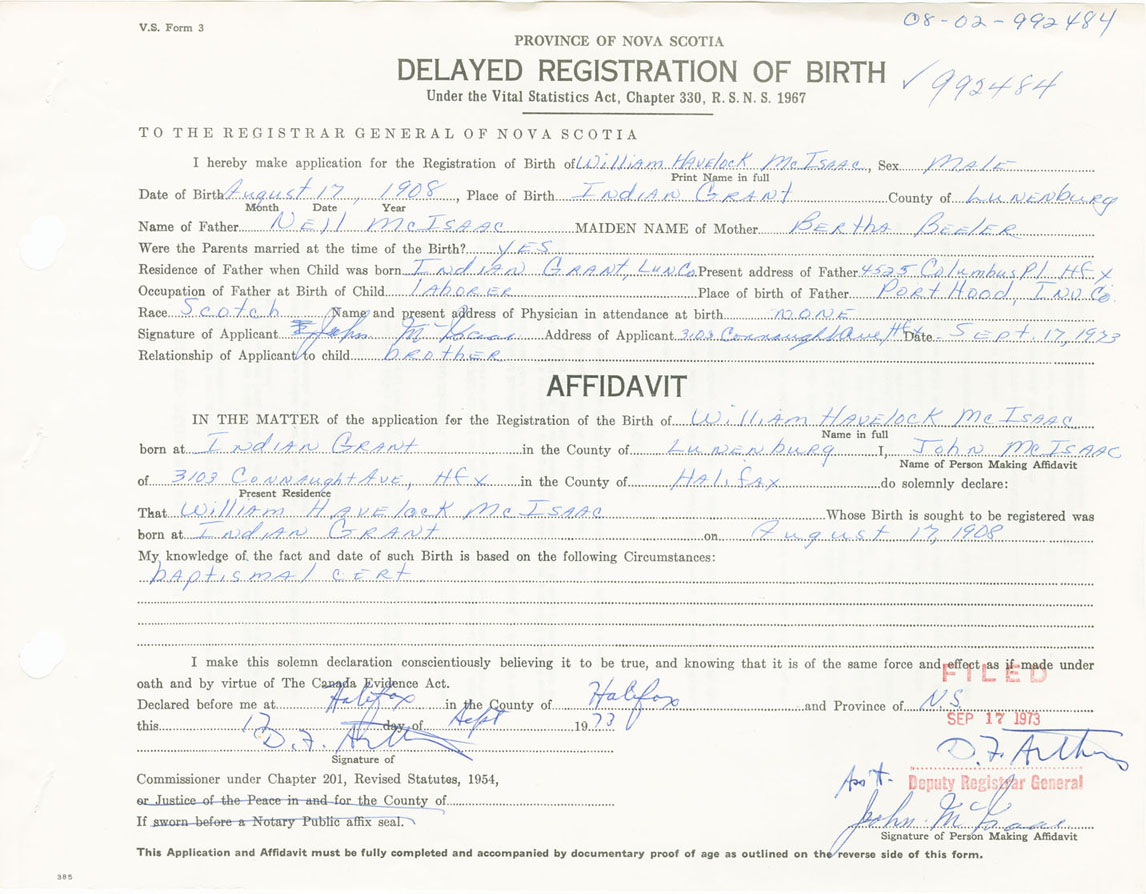 V.S. Form 3
08-02-992484
PROVINCE OF NOVA SCOTIA
DELAYED REGISTRATION OF BIRTH
✓ 992484
Under the Vital Statistics Act, Chapter 330, R.S.N.S. 1967
TO THE REGISTRAR GENERAL OF NOVA SCOTIA
I hereby make application for the Registration of Birth of William Havelock McIsaac, Sex Male
Print Name in full
Date of Birth August 17, 1908, Place of Birth Indian Grant County of Lunenburg
Month Date Year
Name of Father Neil McIsaac MAIDEN NAME of Mother Bertha Beeler
Were the Parents married at the time of the Birth? Yes
Residence of Father when Child was born Indian Grant, Lun Co. Present address of Father 4525 Columbus Pl. Hfx
Occupation of Father at Birth of Child laborer Place of birth of Father Port Hood, Inv. Co.
Race Scotch Name and present address of Physician in attendance at birth none
Signature of Applicant John McIsaac Address of Applicant 3103 Connaught Ave, Hfx Date Sept. 17, 1973
Relationship of Applicant to child brother
AFFIDAVIT
IN THE MATTER of the application for the Registration of the Birth of William Havelock McIsaac
Name in full
born at Indian Grant in the County of Lunenburg I, John McIsaac
Name of Person Making Affidavit
of 3103 Connaught Ave, Hfx in the County of Halifax do solemnly declare:
Present Residence
That William Havelock McIsaac Whose Birth is sought to be registered was
born at Indian Grant on August 17, 1908
My knowledge of the fact and date of such Birth is based on the following Circumstances:
baptismal cert
I make this solemn declaration conscientiously believing it to be true, and knowing that it is of the same force and effect as if made under
oath and by virtue of The Canada Evidence Act.
FILED
Declared before me at Halifax in the County of Halifax and Province of N.S.
SEP 17 1973
this 17 day of Sept 1973
D.F. Arthur
D.F. Arthur
Signature of
Commissioner under Chapter 201, Revised Statutes, 1954,
Ass't. Deputy Registrar General
or Justice of the Peace in and for the County of
John McIsaac
If sworn before a Notary Public affix seal.
Signature of Person Making Affidavit
This Application and Affidavit must be fully completed and accompanied by documentary proof of age as outlined on the reverse side of this form.
385